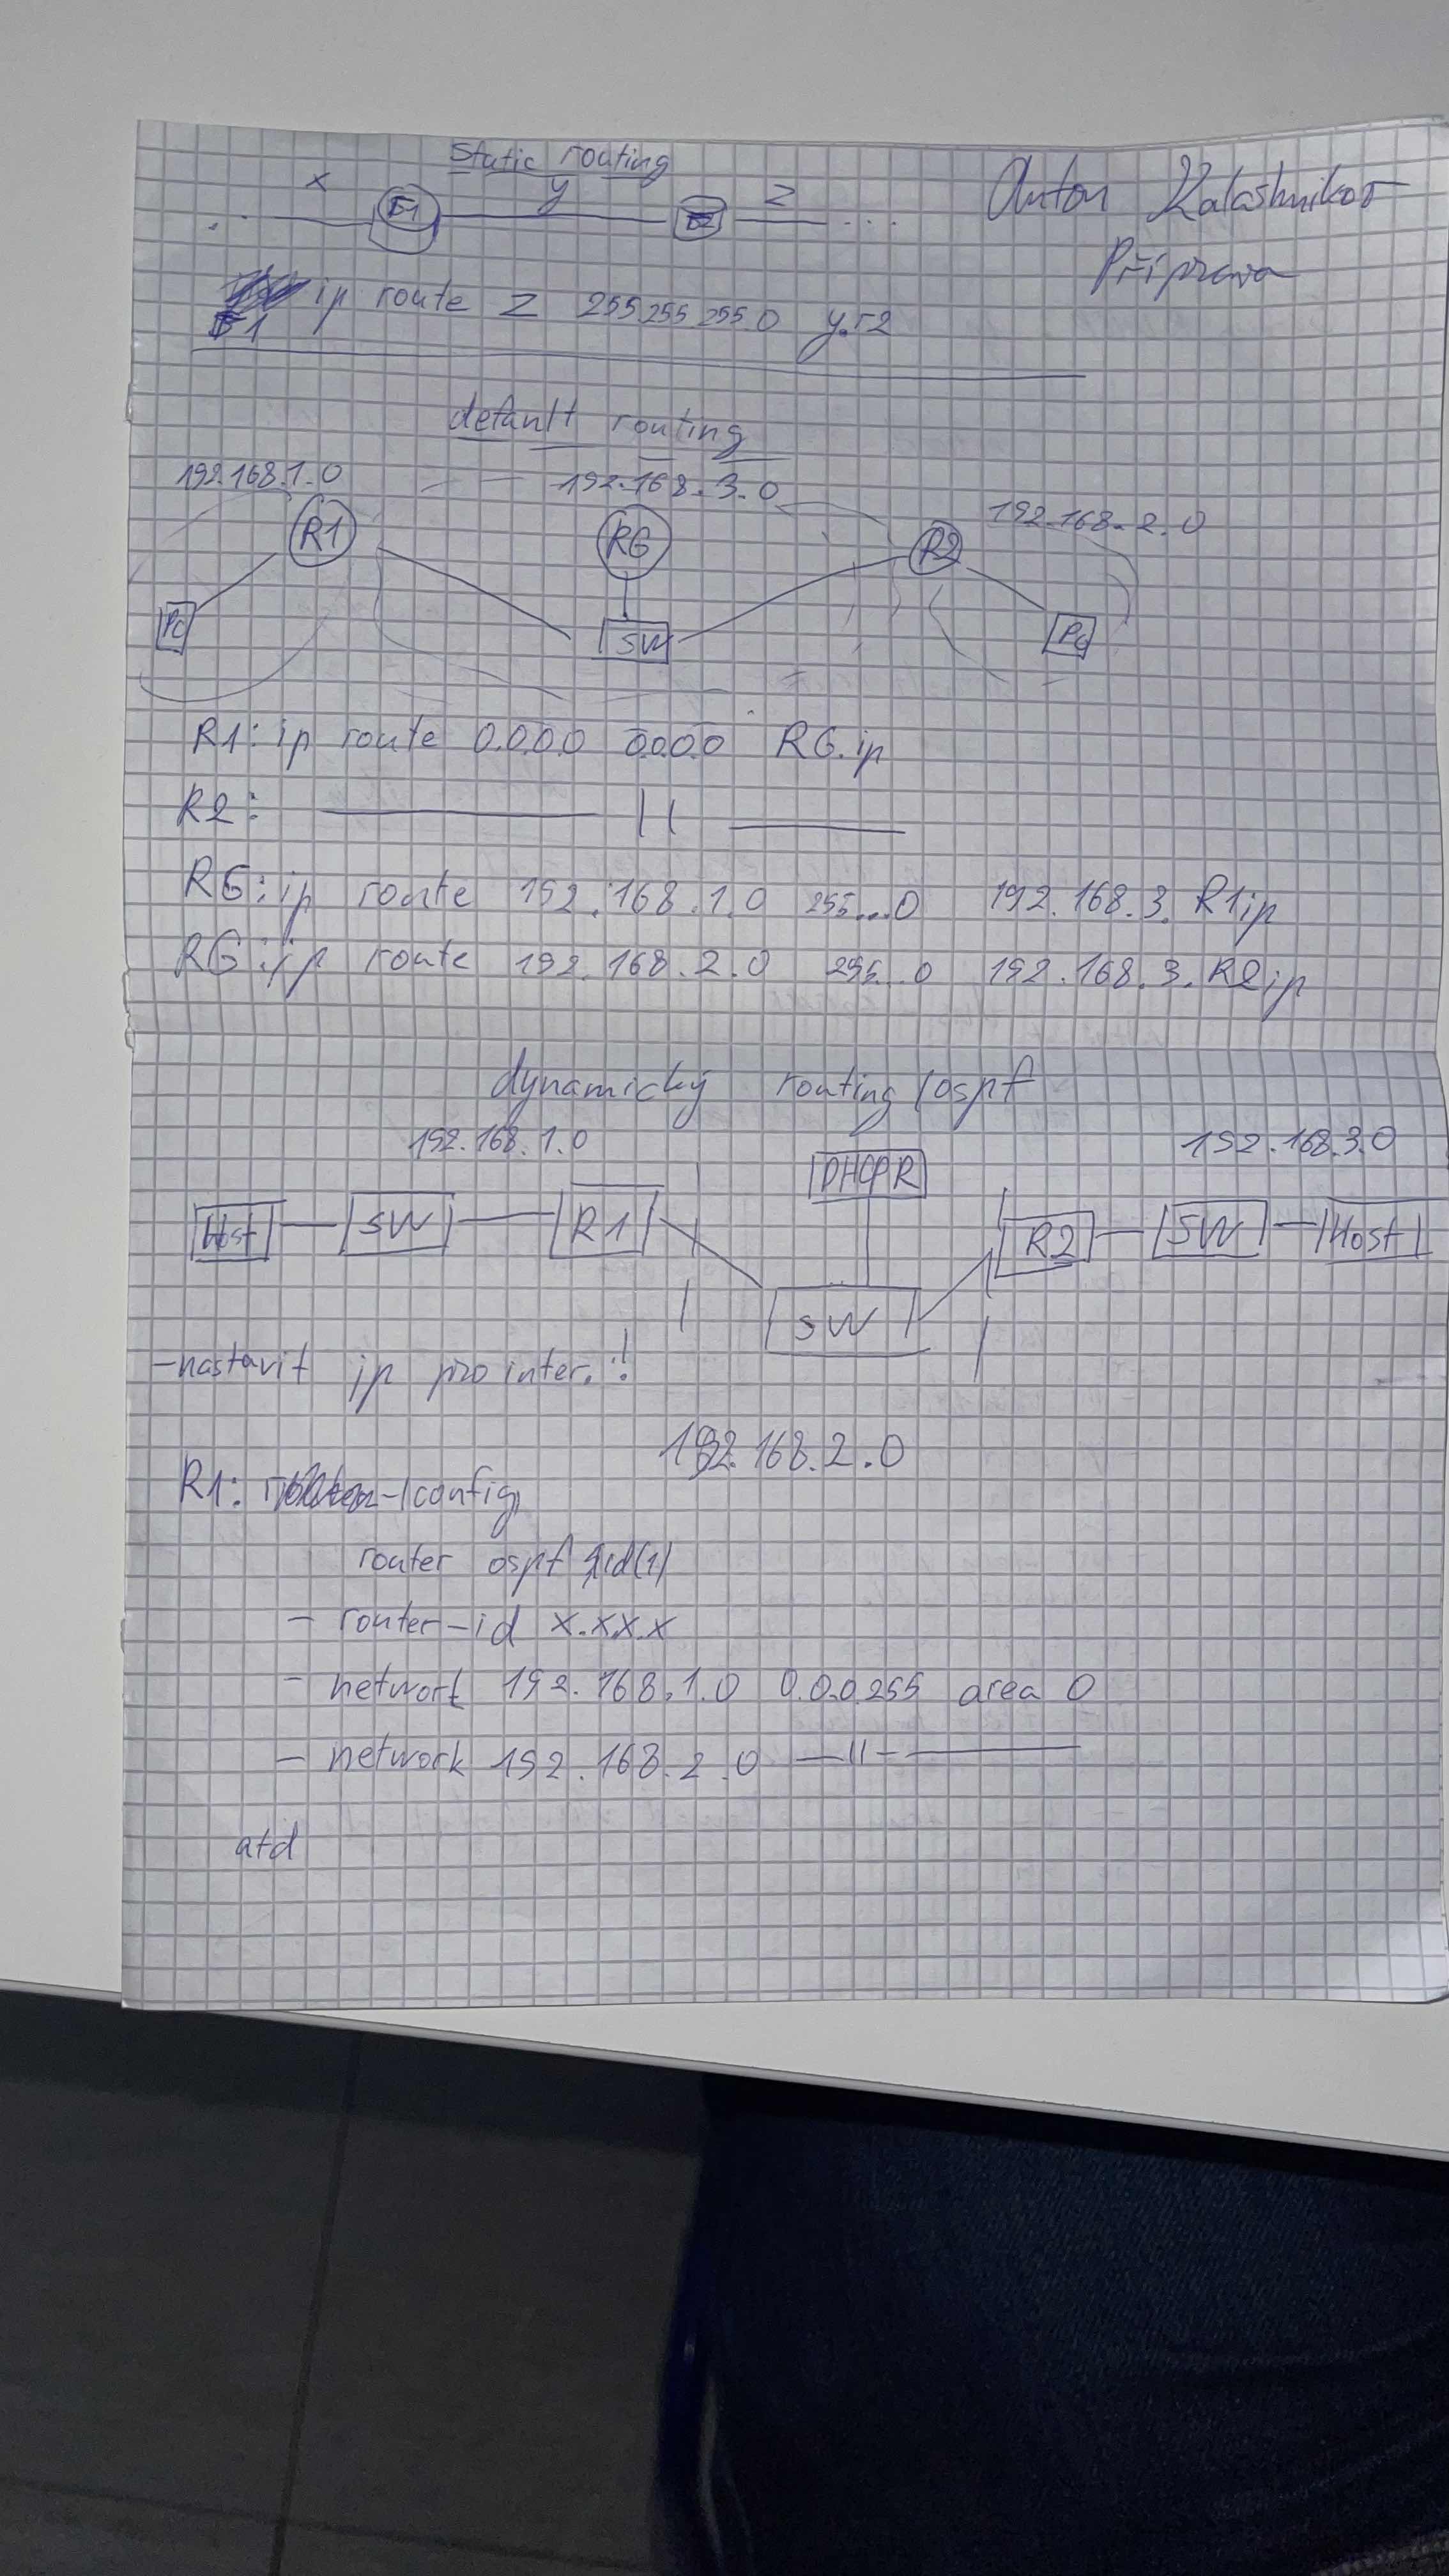 Static routing
x y z
Anton Kalashnikov
Příprava
r1 r2
r1 ip route z 255.255.255.0 y.r2
default routing
192.168.1.0 192.168.3.0 192.168.2.0
R1 RG R2
PC SW PC
R1: ip route 0.0.0.0 0.0.0.0 RG.ip
R2: —— 11 ——
RG: ip route 192.168.1.0 255...0 192.168.3.R1ip
RG: ip route 192.168.2.0 255...0 192.168.3.R2ip
dynamický routing / ospf
192.168.1.0 192.168.3.0
DHCP R
Host SW R1 R2 SW Host
SW
-nastavit ip pro inter.!
192.168.2.0
R1: -/config
router ospf id(1)
- router-id x.x.x.x
- network 192.168.1.0 0.0.0.255 area 0
- network 192.168.2.0 —11—
atd